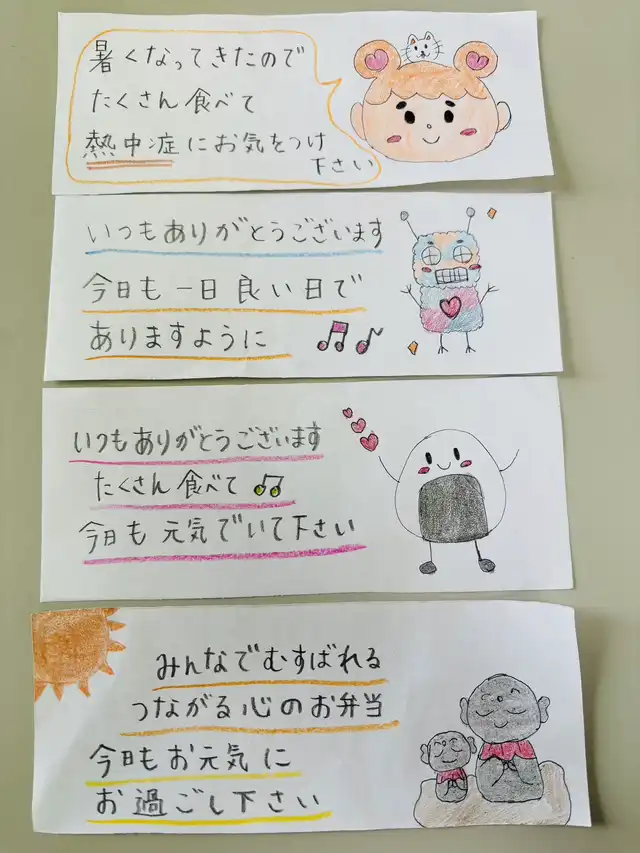 暑くなってきたので
たくさん食べて
熱中症にお気をつけ
下さい
いつもありがとうございます
今日も一日良い日で
ありますように
いつもありがとうございます
たくさん食べて
今日も元気でいて下さい
みんなでむすばれる
つながる心のお弁当
今日もお元気に
お過ごし下さい